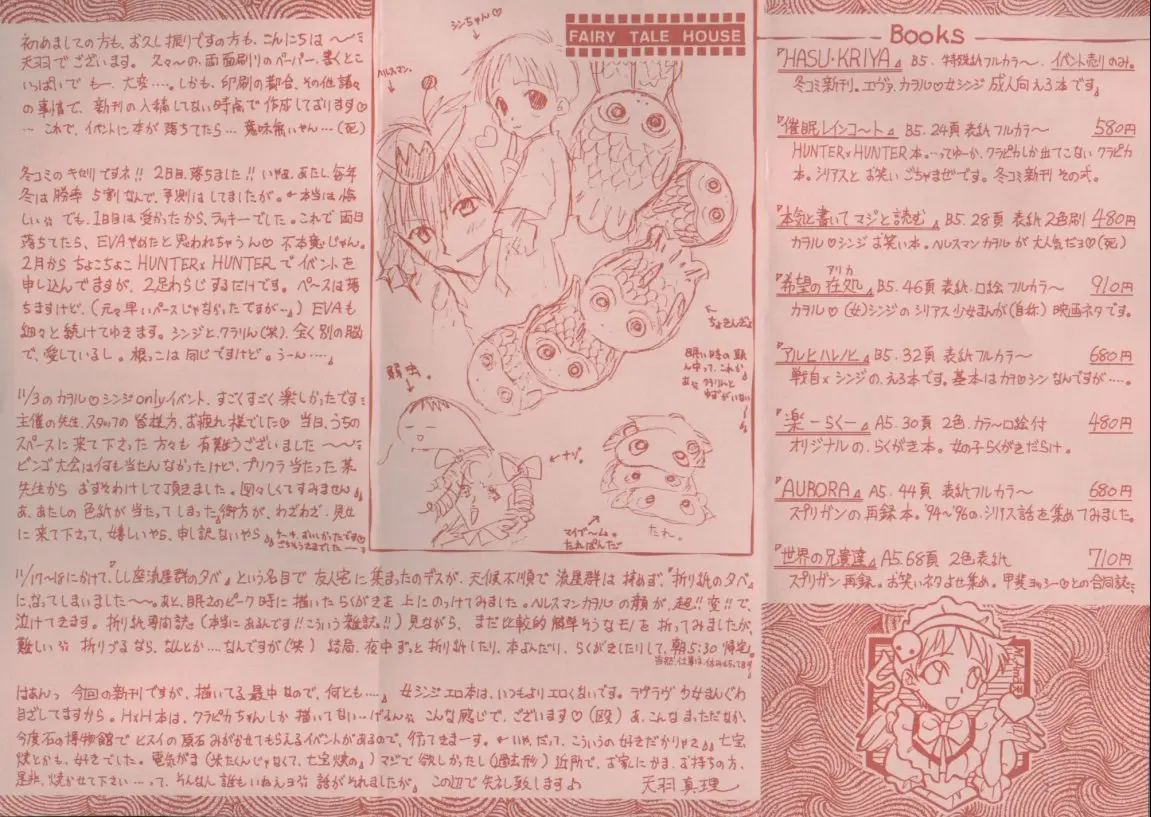 初めましての方も、お久し振りですの方も、こんにちは〜〜
天羽でございます。久々〜の、両面刷りのペーパー、書くとこ
いっぱいで もー、大変‥‥。しかも、印刷の都合、その他諸々
の事情で、新刊の入稿してない時点で作成しております♡
… これで、イベントに本が落ちてたら… 意味無いやん…(死)
冬コミのキセリですネ!! 2日目、落ちました!! いやぁ、あたし、毎年
冬は勝率 5割なんで、予測はしてましたが。本当は悔
しい でも、1日目は受かったから、ラッキーでした。これで両日
落ちてたら、EVAやめたと思われちゃうん♡ 不本意じゃん。
2月から ちょこちょこ HUNTER×HUNTER でイベントを
申し込んでますが、2足わらじするだけです。ペースは落
ちますけど、(元々早いペースじゃなかったですが…) EVAも
細々と続けてゆきます。シンジと、クラりん(笑)、全く別の脳
で、愛しているし。根っこは同じですけど。うーん‥‥
11/3のカヲル♡シンジonlyイベント、すごくすごく楽しかったです
主催の先生、スタッフの皆様方、お疲れ様でした♡ 当日、うちの
スペースに来て下さった方々も 有難うございました〜〜
ビンゴ大会は何も当たんなかったけど、プリクラ当たった某
先生から おすそわけして頂きました。図々しくてすみません
あ、あたしの色紙が当たってしまった御方が、わざわざ、見せ
に来て下さって、嬉しいやら、申し訳ないやら
ケーキ、おいしかったです♡
ごちそうさまでした
11/17〜18にかけて、『しし座流星群の夕べ』という名目で 友人宅に集まったのデスが、天候不順で 流星群は 拝めず、『折り紙の夕べ』
になってしまいました〜〜。あと、眠さのピーク時に 描いたらくがきを 上にのっけてみました。ヘルスマンカヲルの顔が、超!!変!!で、
泣けてきます。折り紙専門誌(本当にあるんです!!こういう雑誌!!)見ながら、まだ比較的簡単そうなモノを折ってみましたが、
難しい 折りづるなら、なんとか‥‥なんですが(笑) 結局、夜中ずっと折り紙したり、本よんだり、らくがきしたりして、朝5:30帰宅。
当然、仕事は、休みもらってます
はぁんっ 今回の新刊ですが、描いてる最中なので、何とも‥‥ 女シンジエロ本は、いつもよりエロくないです。ラヴラヴ少女まんぐわ
目ざしてますから。H×H本は、クラピカちゃんしか 描いてない… こんな感じで、ございます♡(殴) あ、こんなまっただなか、
今度石の博物館で ヒスイの原石みがかせてもらえるイベントがあるので、行ってきまーす。←いや、だって、こういうの好きだかりゃさ 七宝
焼とかも、好きでした。電気がま(米たくんじゃなくて、七宝焼の)マジで欲しかったし(過去形) 近所で、お家にかま、お持ちの方、
是非、焼かせて下さい…って、そんなん誰もいねぇヨ 話がそれましたが、この辺で失礼致します
天羽真理
シンちゃん♡
ヘルスマン。
FAIRY TALE HOUSE
弱虫。
←ナゾ。
マイブーム。
たれぱんだ
たれ。
Books
『HASU・KRIYA』 B5、特殊紙フルカラ〜、イベント売りのみ。
冬コミ新刊。エヴァ、カヲル♡女シンジ 成人向えろ本です。
『催眠レインコート』 B5、24頁 表紙フルカラ〜 580円
HUNTER×HUNTER本。…ってゆーか、クラピカしか出てこない クラピカ
本。シリアスとお笑いごちゃまぜです。冬コミ新刊 その弐。
『本気と書いてマジと読む』 B5、28頁 表紙2色刷 480円
カヲル♡シンジお笑い本。ヘルスマンカヲルが大人気だヨ♡(死)
『希望の在処』 B5、46頁 表紙・口絵 フルカラ〜 910円
アリカ
カヲル♡(女)シンジのシリアス少女まんが(自称) 映画ネタです。
『アルヒハレノヒ』 B5、32頁 表紙フルカラ〜 680円
戦自×シンジの、えろ本です。基本はカヲ♡シンなんですが‥‥。
『楽−らく−』 A5、30頁 2色、カラー口絵付 480円
オリジナルの、らくがき本。女の子らくがきだらけ。
『AURORA』 A5、44頁 表紙フルカラ〜 680円
スプリガンの再録本。'94〜'96の、シリアス話を集めてみました。
『世界の兄貴達』 A5、68頁 2色表紙 710円
スプリガン再録。お笑いネタよせ集め。甲斐ヨッシー♡との合同誌